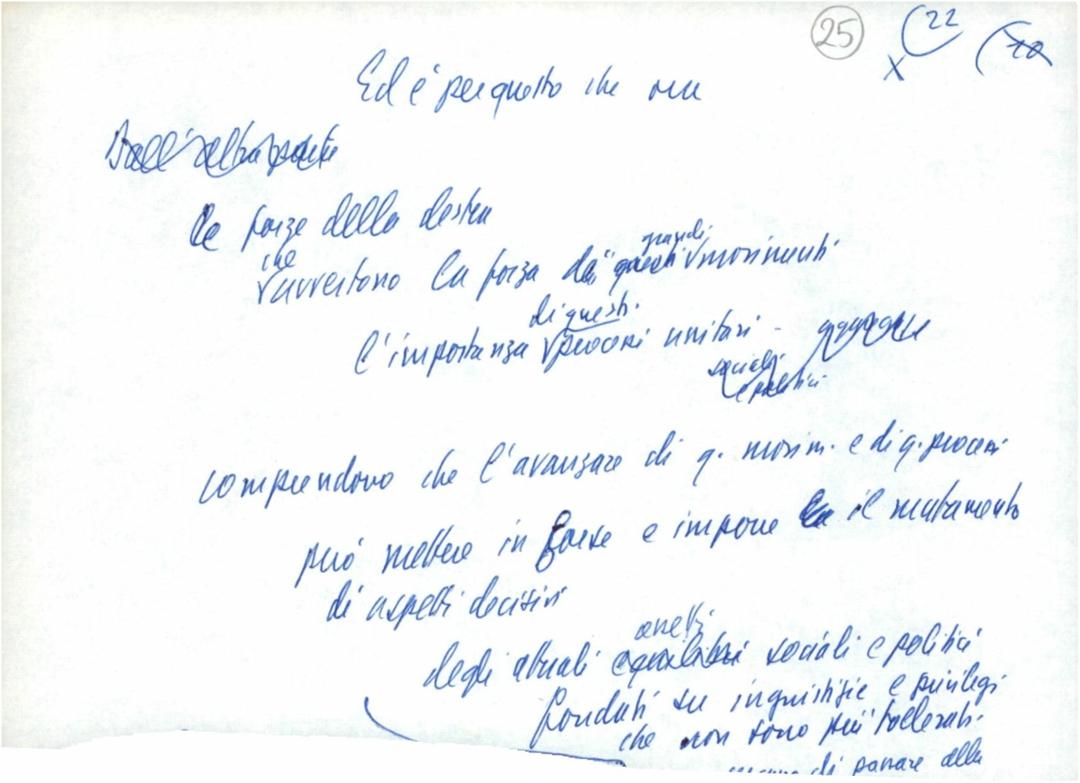 25 22
Ed è per questo che ora
Dall'altra parte
le forze della destra
che
avvertono la forza di questi grandi movimenti
l'importanza di questi processi unitari -
sociali
e politici
comprendono che l'avanzare di q. movim. e di q. processi
può mettere in forse e imporre il mutamento
di aspetti decisivi
degli attuali equilibri assetti sociali e politici
fondati su ingiustizie e privilegi
che non sono più tollerati.
di passare alla